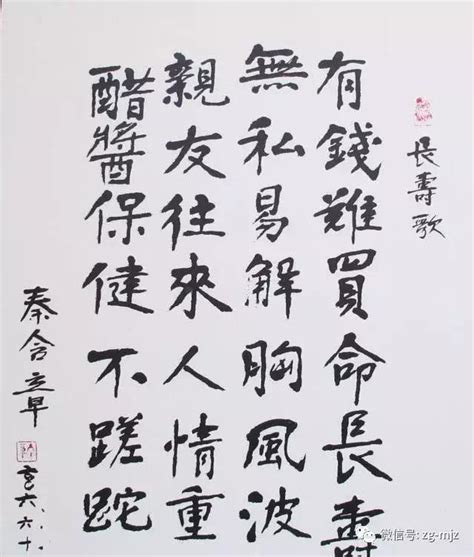 長壽歌
有錢難買命長壽
無私易解胸風波
親友往來人情重
醋醬保健不蹉跎
秦含章
六.六.十.
微信号: zg-mjz